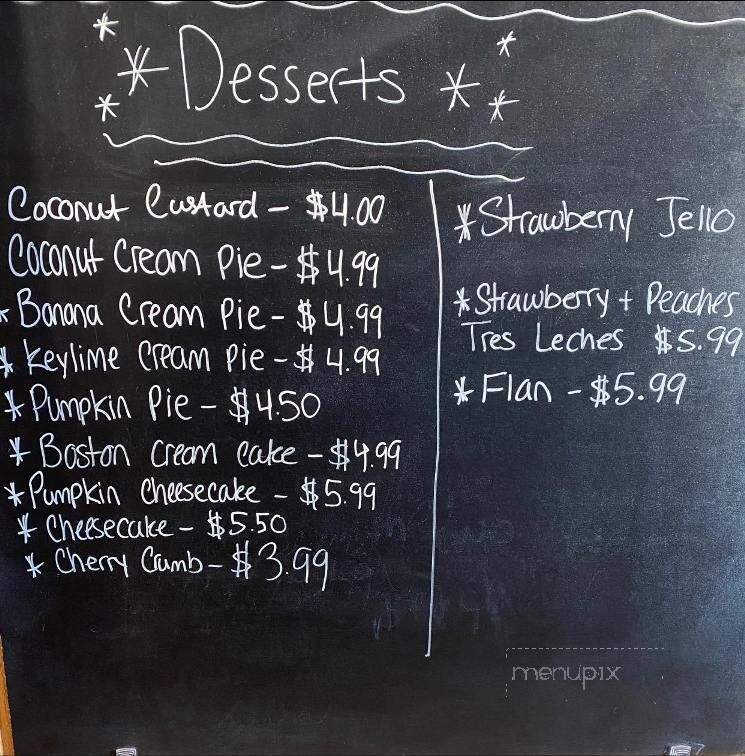 * Desserts *
Coconut Custard - $4.00
Coconut Cream Pie - $4.99
* Banana Cream Pie - $4.99
* Keylime Cream Pie - $4.99
* Pumpkin Pie - $4.50
* Boston Cream Cake - $4.99
* Pumpkin Cheesecake - $5.99
* Cheesecake - $5.50
* Cherry Crumb - $3.99
* Strawberry Jello
* Strawberry + Peaches
Tres Leches $5.99
* Flan - $5.99
menupix